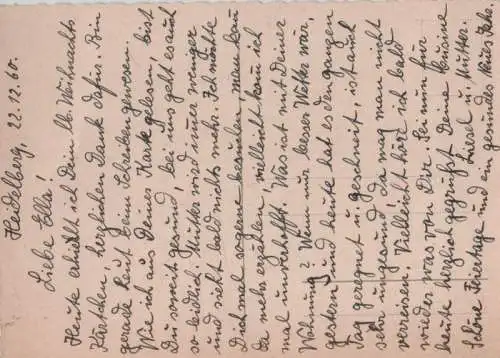 Heidelberg, 22.12.60.
Liebe Ella!
Heute erhielt ich Dein lb. Weihnachts
Kärtchen, herzlichen Dank dafür. Bin
gerade heut beim Schreiben gewesen.
Wie ich aus Deiner Karte gelesen, bist
Du soweit gesund, bei uns geht es auch
so leidlich. Mutter wird immer weniger
und sieht bald nichts mehr. Ich möchte
Dich mal so gerne besuchen, man kann
da mehr erzählen, vielleicht kann ich
mal unverhofft. Was ist mit Deiner
Wohnung? Wenn nur besser Wetter wär,
gestern und heute hat es den ganzen
Tag geregnet u. geschneit, ist auch
sehr ungesund, da mag man nicht
verreisen. Vielleicht hör ich bald
wieder was von Dir. Sei nun für
heute herzlich gegrüßt Deine Cousine
Liesel u. Mutter.
Schöne Feiertage und ein gesundes Neues Jahr.